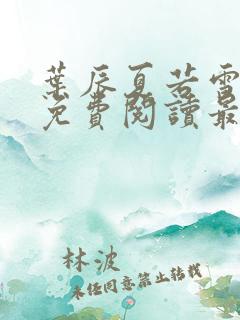 葉辰夏若雪
免費閱讀最
林波
未經同意禁止轉載